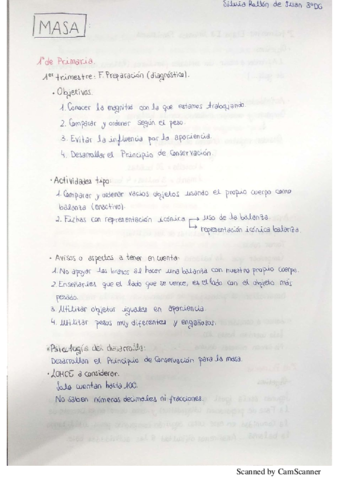 Silvia Rollón de Juan 3ºDG
MASA
1º de Primaria.
1er trimestre: F. Preparación (diagnóstica).
· Objetivos:
1. Conocer la magnitud con la que estamos trabajando.
2. Comparar y ordenar según el peso.
3. Evitar la influencia por la apariencia.
4. Desarrollar el Principio de Conservación.
· Actividades tipo
1. Comparar y ordenar varios objetos usando el propio cuerpo como
balanza (enactivo).
2. Fichas con representación icónica → uso de la balanza
representación icónica balanza.
· Avisos o aspectos a tener en cuenta
1. No apoyar los brazos al hacer una balanza con nuestro propio cuerpo.
2. Enseñarles que el lado que se vence, es el lado con el objeto más
pesado.
3. Utilizar objetos iguales en apariencia.
4. Utilizar pesos muy diferentes y engañosos.
· Psicología del desarrollo:
Desarrollan el Principio de Conservación para la masa.
· LOMCE a considerar.
Solo cuentan hasta 100.
No saben números decimales ni fracciones.
Scanned by CamScanner